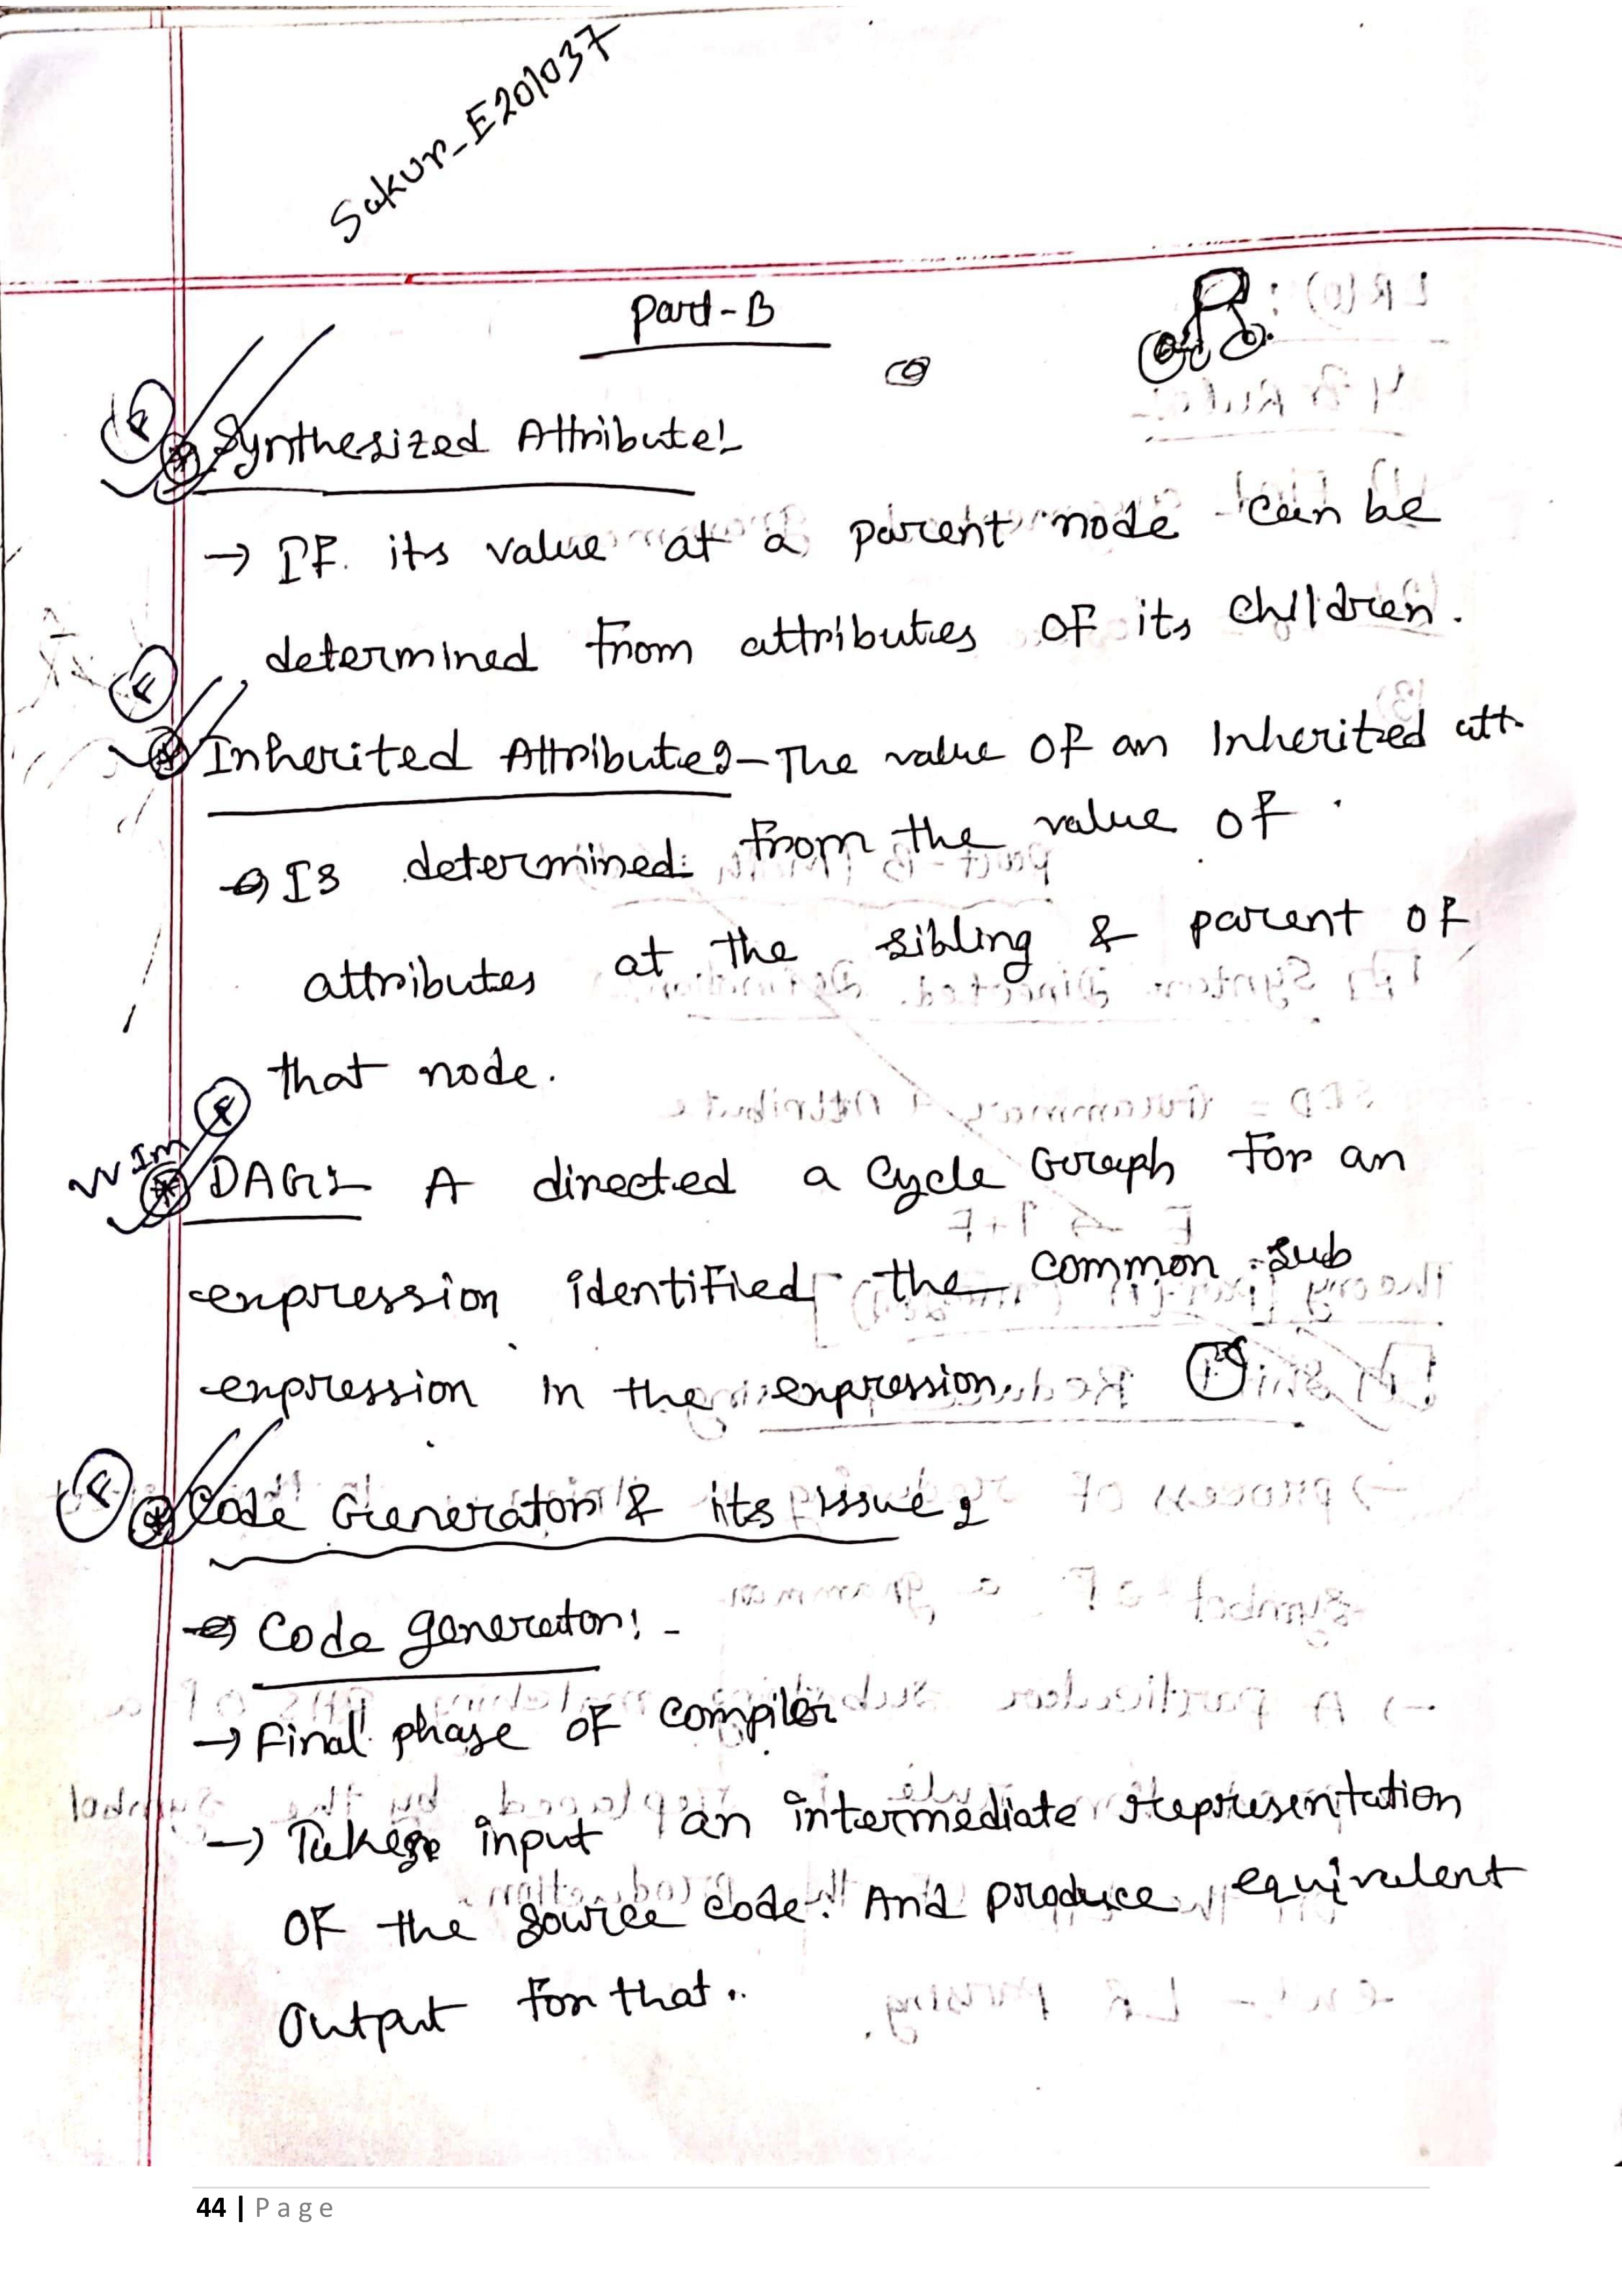 Sakur_E201037
Part-B
Synthesized Attribute:-
→ IF its value at a parent node can be
determined from attributes of its children.
Inherited Attribute:- The value of an Inherited att.
→ Is determined from the value of
attributes at the sibling & parent of
that node.
VV Im
DAG:- A directed a cycle Graph for an
expression identified the common sub
expression in the expression.
Code Generator & its issue:
→ Code generator:-
→ Final phase of compiler
→ Takes input an intermediate representation
of the source code. And produce equivalent
output for that.
44 | Page